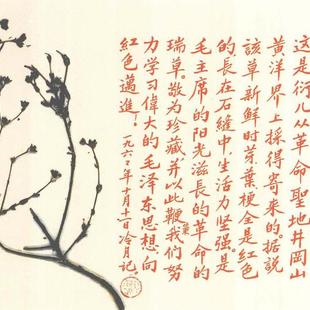 这是衍儿从革命聖地井岡山
黄洋界上採得寄来的。据説
該草新鲜時芽葉梗全是紅色
的長在石缝中,生活力坚强,是
毛主席的阳光滋長的革命的
瑞草。敬为珍藏,并以此鞭策我们努
力学习偉大的毛泽东思想,向
紅色邁進!
一九六六年十月十一日冷月記